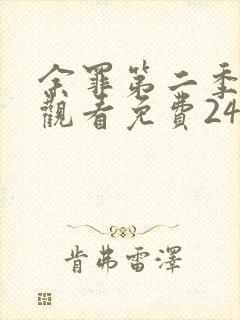 余罪第二季
觀看免費24
肯弗雷澤